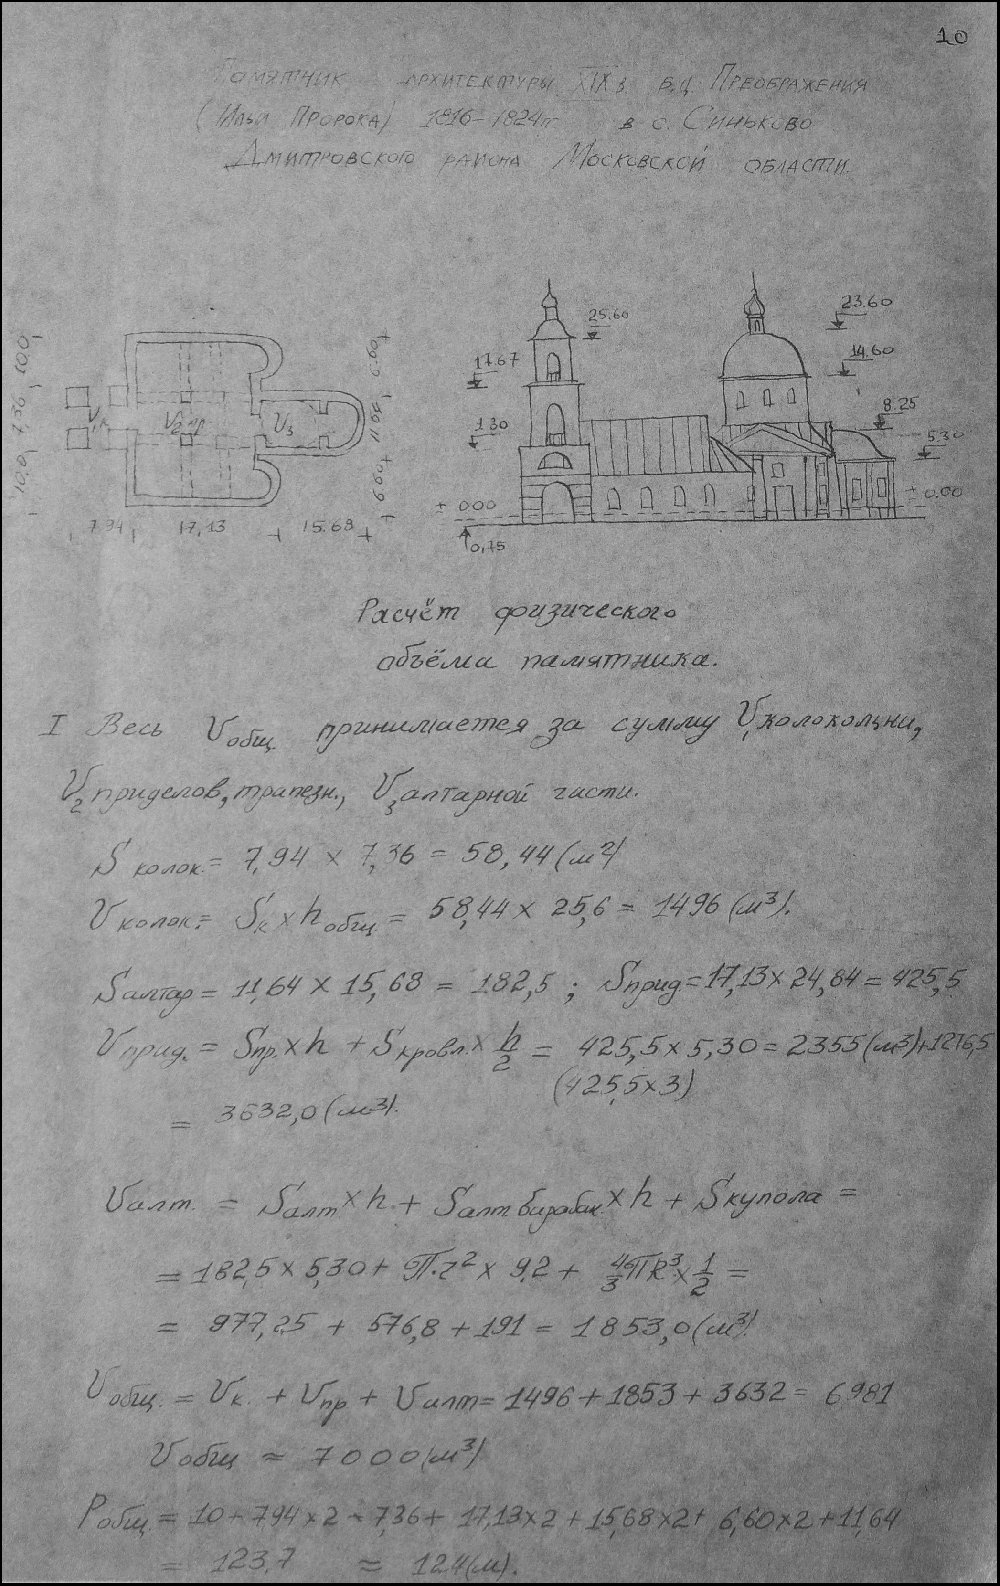 10
Памятник архитектуры XIX в. в.ц. Преображения
(Ильи Пророка) 1816-1824гг в с. Синьково
Дмитровского района Московской области.
25.60
23.60
17.67
14.60
1.30
8.25
5.30
± 000
± 0.00
0,75
V2 пр
V3
7.94 17,13 15.68
Расчёт физического
объёма памятника.
I Весь Vобщ. принимается за сумму V1колокольни,
V2приделов, трапезн., V3алтарной части.
S колок. = 7,94 × 7,36 = 58,44 (м2)
V колок. = Sк × h общ = 58,44 × 25,6 = 1496 (м3).
Sалтар = 11,64 × 15,68 = 182,5 ; Sприд = 17,13 × 24,84 = 425,5
Vприд. = Sпр. × h + Sкровл. × h/2 = 425,5 × 5,30 = 2355 (м3) + 1276,5
(425,5 × 3)
= 3632,0 (м3).
Vалт. = Sалт × h + Sалт барабан. × h + Sкупола =
= 182,5 × 5,30 + П·r2 × 9,2 + 4/3 ПR3 × 1/2 =
= 977,25 + 576,8 + 191 = 1853,0 (м3)
Vобщ. = Vк. + Vпр + Vалт = 1496 + 1853 + 3632 = 6981
Vобщ ≈ 7000 (м3)
Pобщ. = 10 + 7,94 × 2 + 7,36 + 17,13 × 2 + 15,68 × 2 + 6,60 × 2 + 11,64
= 123,7 ≈ 124 (м).